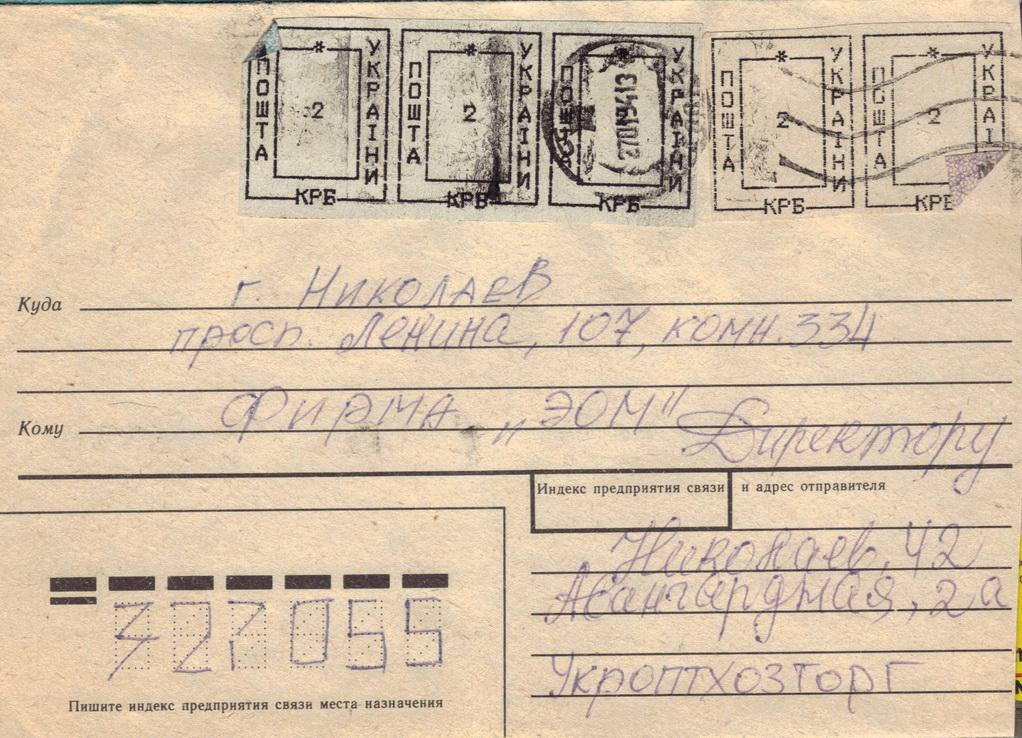 * ПОШТА 2 УКРАІНИ КРБ * ПОШТА 2 УКРАІНИ КРБ * ПОШТА УКРАІНИ КРБ * ПОШТА 2 УКРАІНИ КРБ * ПОШТА 2 УКРАІ КРБ
Куда г. Николаев
просп. Ленина, 107, комн. 334
Кому Фирма "ЭОМ" Директору
Индекс предприятия связи и адрес отправителя
Николаев, 42
Авангардная, 2а
Укроптхозторг
327055
Пишите индекс предприятия связи места назначения